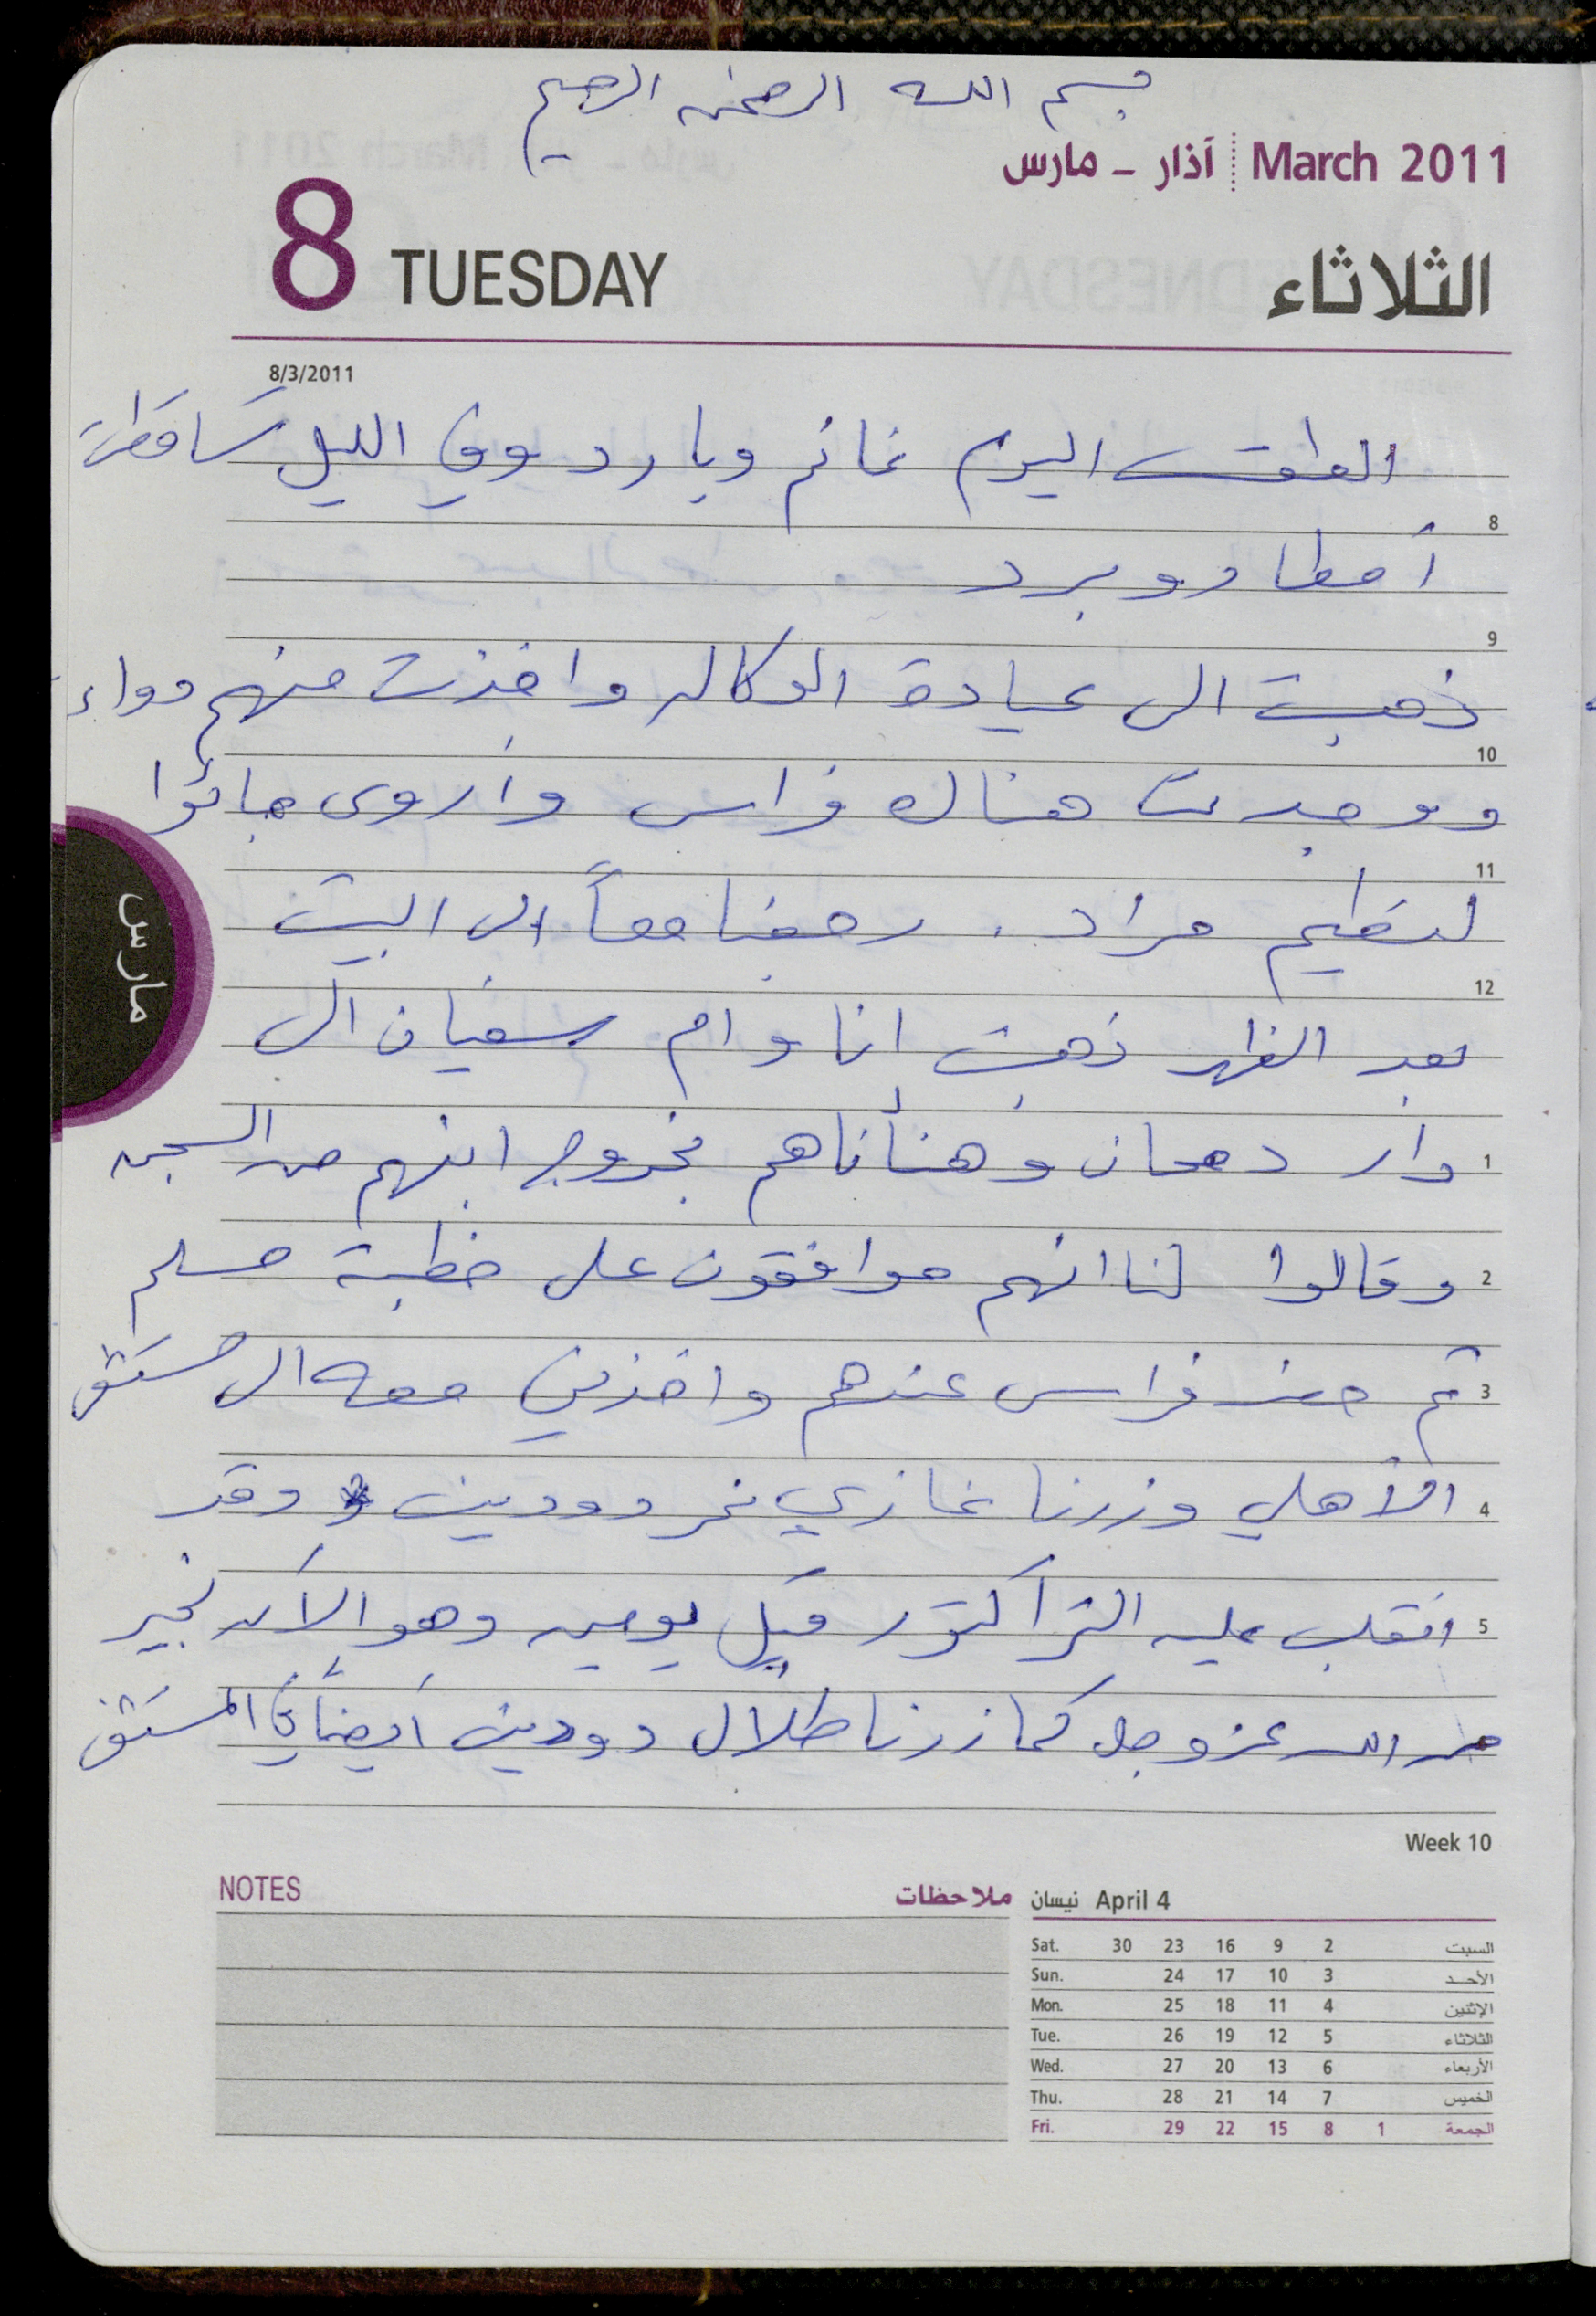 بسم الله الرحمن الرحيم
March 2011 آذار - مارس
8 TUESDAY الثلاثاء
8/3/2011
الطقس اليوم غائم وبارد وفي الليل تساقطت
8
أمطار وبرد
9
ذهبت الى عيادة الوكالة واخذت منهم دواء
10
ووجدت هناك فراس واروى جائوا
11
لتطعيم مراد . رجعنا معاً الى البيت
12
بعد الظهر ذهبت انا وام سفيان الى
1 دار وهنأناهم بخروج ابنهم من السجن
2 وقالوا لنا انهم موافقون على خطبة مسلم
3 ثم فراس عندهم واخذني معه الى مستشفى
4 الأهلي وزرنا غازي نمر دودين وقد
5 انقلب عليه التراكتور قبل يومين وهو الآن بخير
من الله عز وجل كما زرنا طلال دودين أيضاً في المستشفى
مارس
Week 10
NOTES ملاحظات
April 4 نيسان
Sat. 30 23 16 9 2 السبت
Sun. 24 17 10 3 الأحد
Mon. 25 18 11 4 الإثنين
Tue. 26 19 12 5 الثلاثاء
Wed. 27 20 13 6 الأربعاء
Thu. 28 21 14 7 الخميس
Fri. 29 22 15 8 1 الجمعة